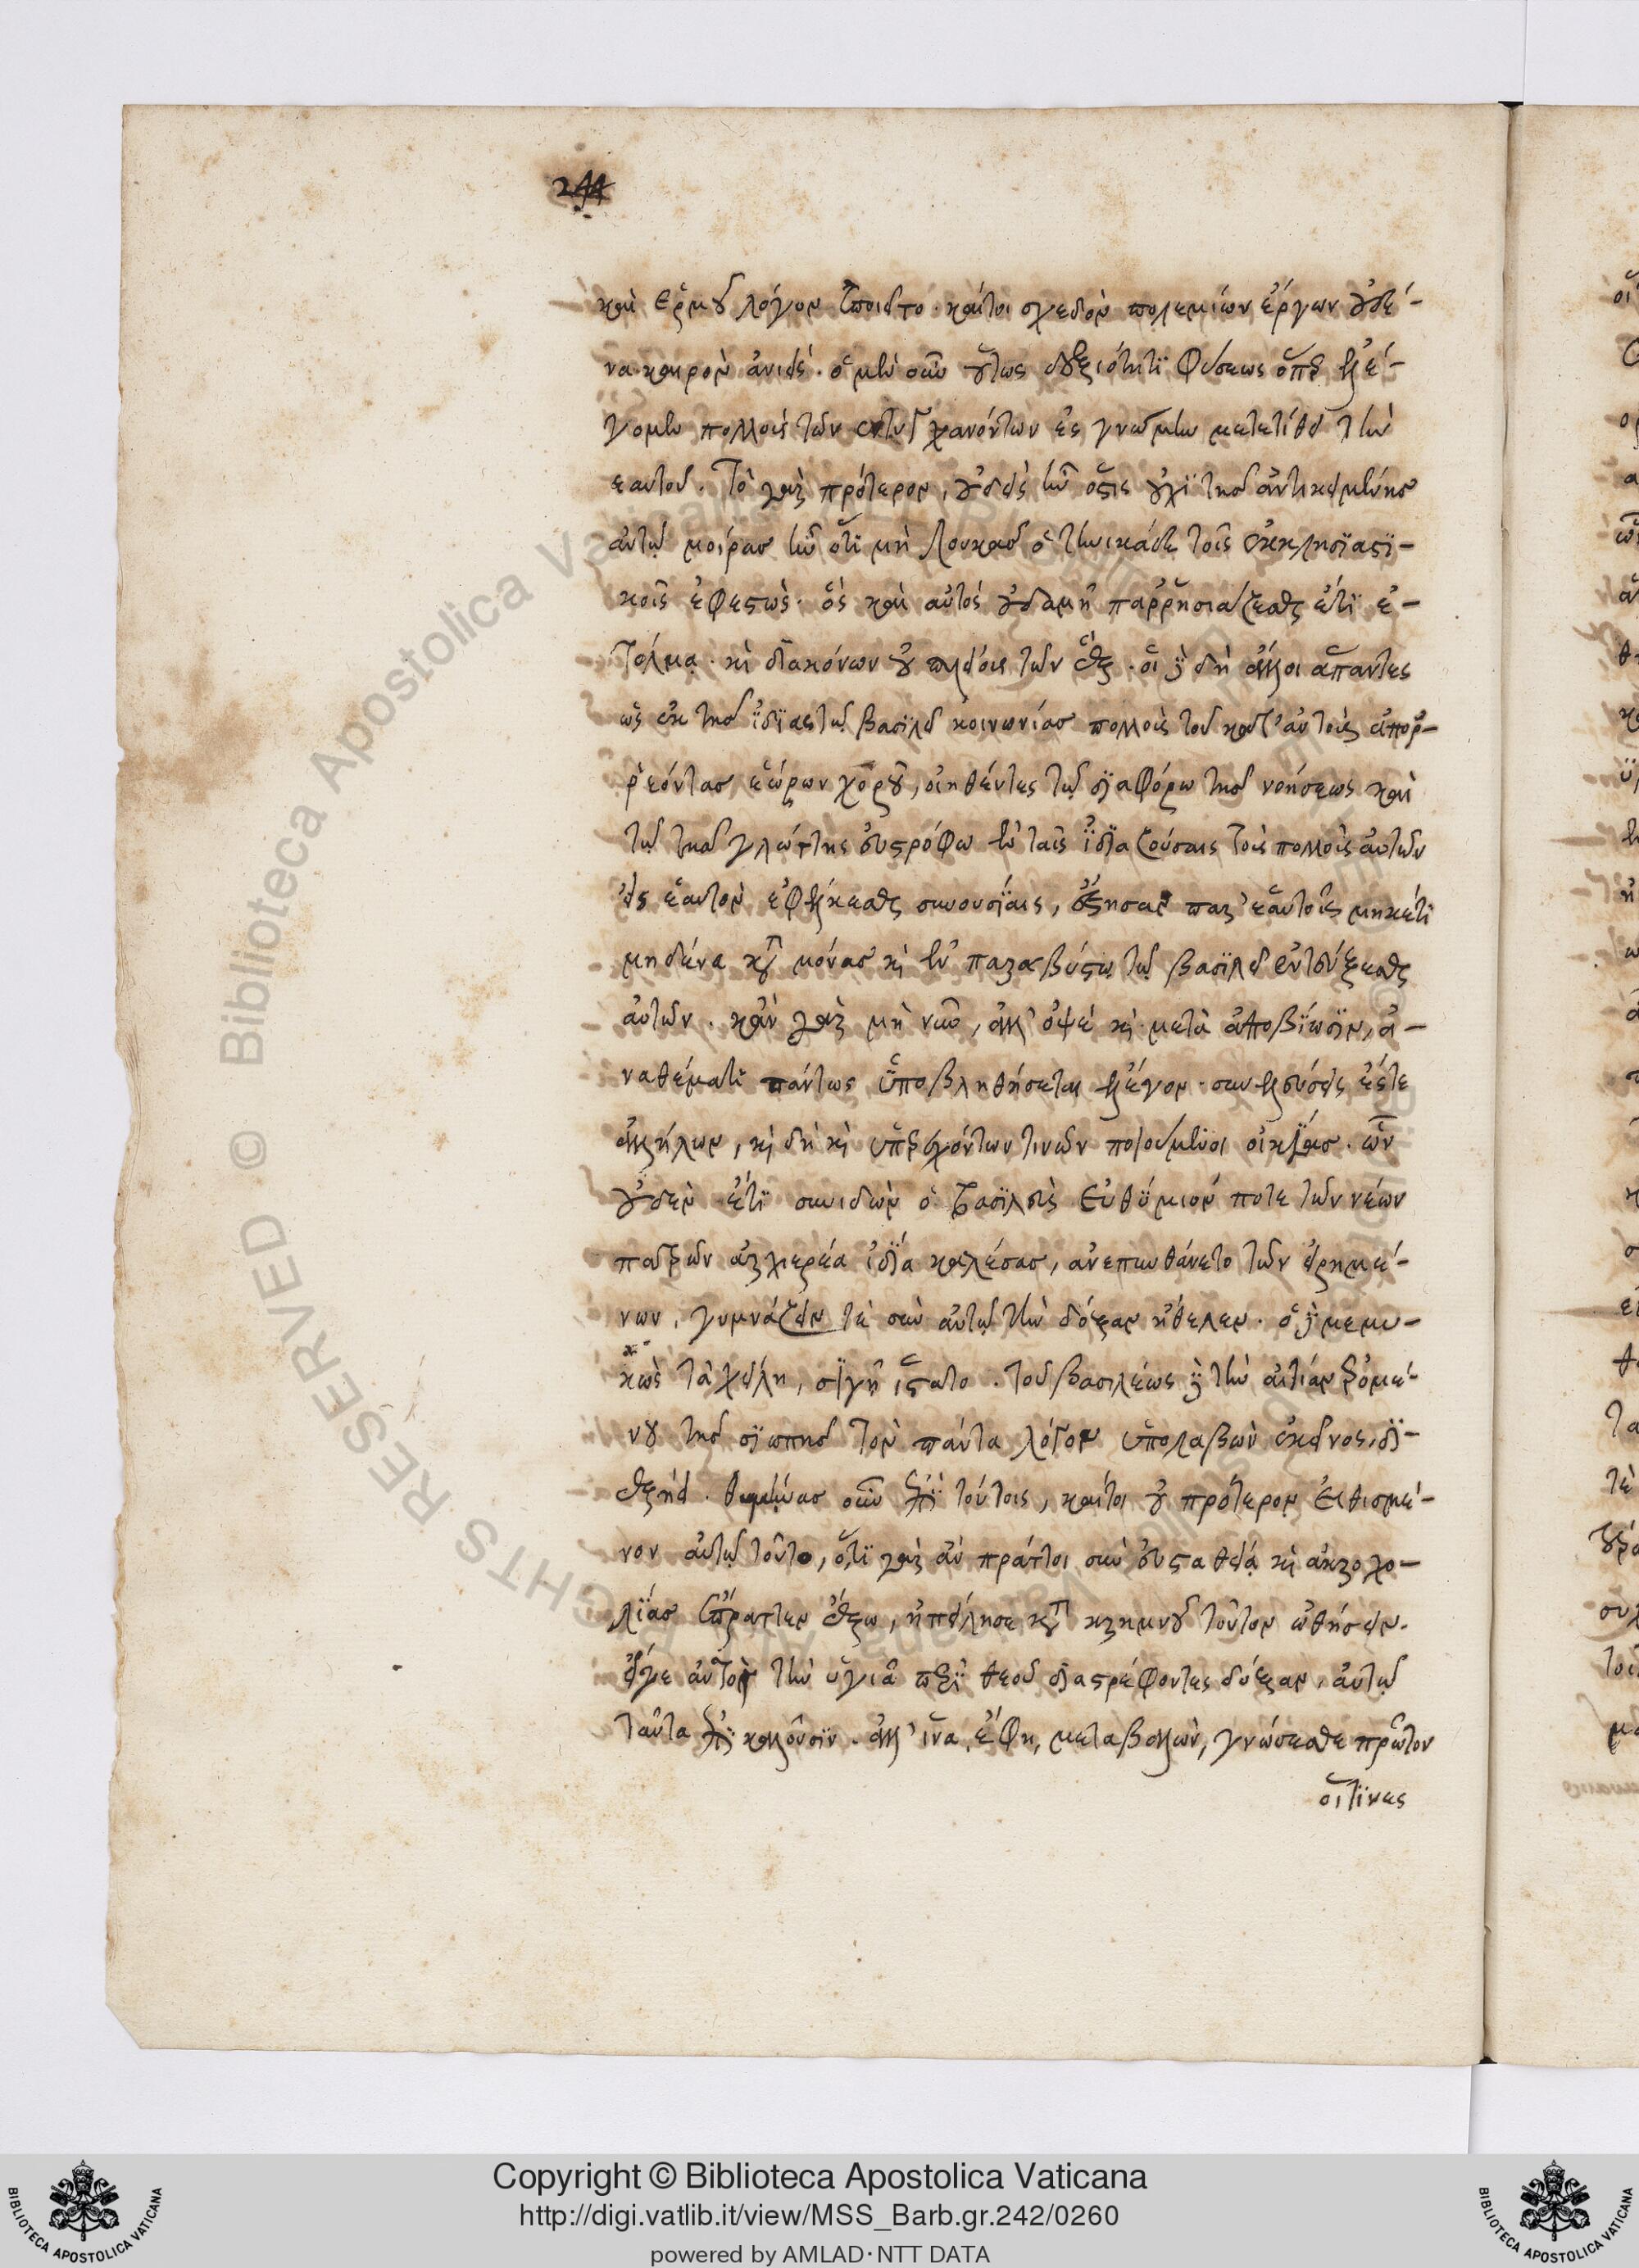 244
καὶ Ἑρμοῦ λόγον ἐποιεῖτο. καίτοι σχεδὸν πολεμίων ἔργων οὐδέ-
να καιρὸν ἀνιείς. ὁ μὲν οὖν οὕτως δεξιότητι φύσεως ὅπερ ἐλέ-
γομεν πολλοὺς τῶν ἐντυγχανόντων ἐς γνώμην μετετίθει τὴν
ἑαυτοῦ. Τὸ γὰρ πρότερον, οὐδεὶς ἦν ὅστις οὐχὶ τῆς ἀντικειμένης
αὐτῷ μοίρας ἦν ὅτι μὴ Λουκᾶς ὁ τηνικάδε τοῖς ἐκκλησιαστι-
κοῖς ἐφεστὼς. ὃς καὶ αὐτὸς οὐδαμῆ παῤῥησιάζεσθαι ἔτι ἐ-
τόλμα. καὶ διακόνων οὐ πλείους τῶν ἕξ. οἱ δὲ δὴ ἄλλοι ἅπαντες
ὡς ἐκ τῆς ἰδίας τῷ βασιλεῖ κοινωνίας πολλοὺς τοῦ κατ' αὐτοὺς ἀποῤ-
ῥέοντας ἑώρων χοροῦ, οἰηθέντες τῷ διαφόρῳ τῆς νοήσεως καὶ
τῷ τῆς γλώττης εὐστρόφῳ ἐν ταῖς ἰδιαζούσαις τοὺς πολλοὺς αὐτῶν
εἰς ἑαυτὸν ἐφέλκεσθαι συνουσίαις, παρ' ἑαυτοῖς μηκέτι
μηδένα κατὰ μόνας καὶ ἐν παραβύστῳ τῷ βασιλεῖ ἐντεύξεσθαι
αὐτῶν. κἂν γὰρ μὴ νῦν, ἀλλ' ὀψέ καὶ μετὰ ἀποβίωσιν, ἀ-
ναθέματι πάντως ὑποβληθήσεται ἔλεγον. συνελεύσεις ἔς τε
ἀλλήλων, καὶ δὴ καὶ ὑπερεχόντων τινῶν ποιούμενοι οἰκίας. ὧν
οὐδὲν ἔτι συνιδὼν ὁ βασιλεὺς Εὐθύμιόν ποτε τῶν νέων
Πατρῶν ἀρχιερέα ἰδίᾳ καλέσας, ἀνεπυνθάνετο τῶν εἰρημέ-
νων, γυμνάζειν τὲ σὺν αὐτῷ τὴν δόξαν ἤθελεν. ὁ δὲ μεμυ-
κὼς τὰ χείλη, σιγῇ ἵστατο. τοῦ βασιλέως δὲ τὴν αἰτίαν ἐρομέ-
νου τῆς σιωπῆς τὸν πάντα λόγον ὑπολαβὼν ἐκεῖνος, δι-
εξῄει. θυμήνας οὖν ἐπὶ τούτοις, καίτοι οὐ πρότερον εἰθισμέ-
νον αὐτῷ τοῦτο, ὅτι γὰρ ἂν πράττοι σὺν εὐσταθείᾳ καὶ ἀκροχο-
λίας ἔπραττεν ἔξω, ἠπείλησε κατὰ κρημνοῦ τοῦτον ὠθήσειν.
εἴγε αὐτὸν τὴν ὑγιᾶ περὶ θεοῦ διαστρέφοντες δόξαν, αὐτῷ
ταῦτα ἐπικαλοῦσιν. ἀλλ' ἵνα, ἔφη, μεταβαλὼν, γνώσεσθε πρῶτον
οἵτινες
Copyright © Biblioteca Apostolica Vaticana
http://digi.vatlib.it/view/MSS_Barb.gr.242/0260
powered by AMLAD·NTT DATA